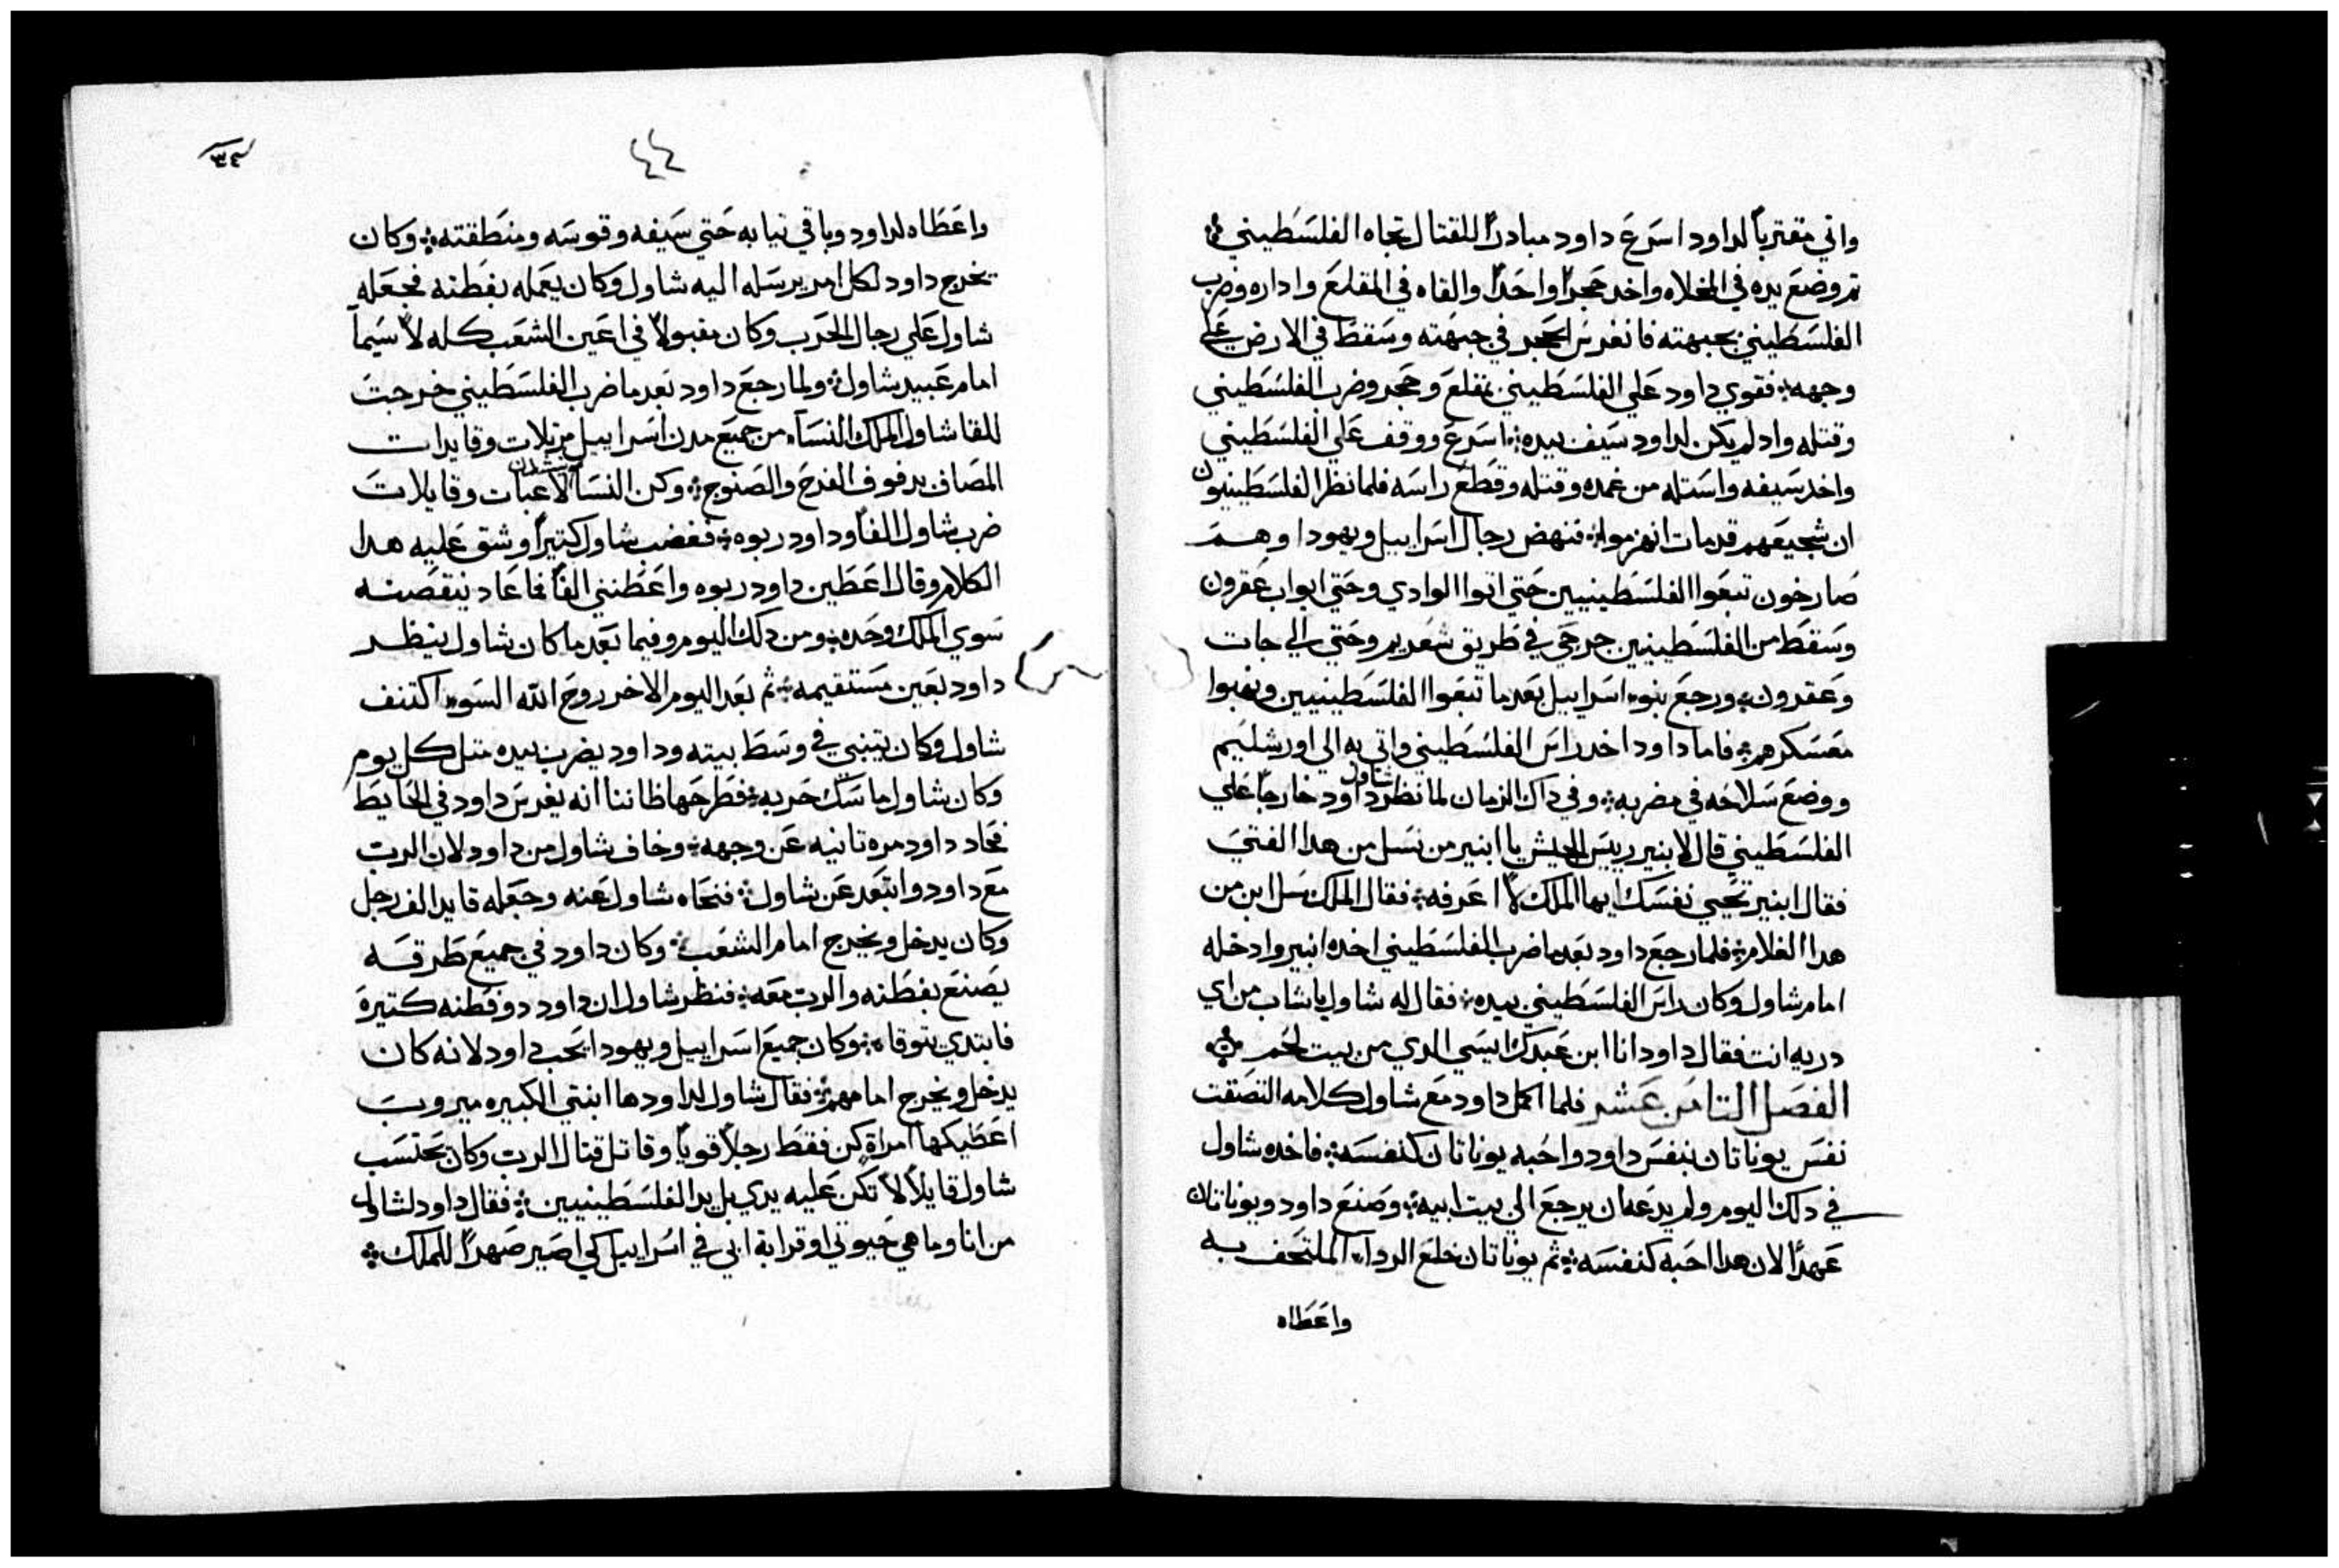 واتي مقترباً لداود اسرع داود مبادراً للقتال تجاه الفلسطيني
تم وضع يده في المخلاه واخد حجراً واحداً والقاه في المقلع واداره وضرب
الفلسطيني بجبهته فانغرس الحجر في جبهته وسقط في الارض علي
وجهه فقوي داود علي الفلسطيني بمقلع وحجر وضرب الفلسطيني
وقتله واد لم يكن لداود سيف بيده اسرع ووقف علي الفلسطيني
واخد سيفه واستله من غمده وقتله وقطع راسه فلما نظر الفلسطينيون
ان شجيعهم قد مات انهزموا فنهض رجال اسراييل ويهودا وهم
صارخون تبعوا الفلسطينيين حتي اتوا الوادي وحتي ابواب عقرون
وسقط من الفلسطينيين جرحي في طريق شعديم وحتي الي جات
وعقرون ورجع بنوا اسراييل بعد ما تبعوا الفلسطينيين ونهبوا
معسكرهم فاما داود اخد راس الفلسطيني واتي به الي اورشليم
ووضع سلاحه في مضربه وفي داك الزمان لما نظر شاول داود خارجاً علي
الفلسطيني قال لابنير رييس الجيش يا ابنير من نسل من هدا الفتي
فقال ابنير تحيي نفسك ايها الملك لا اعرفه فقال الملك سل ابن من
هدا الغلام فلما رجع داود بعد ما ضرب الفلسطيني اخده ابنير وادخله
امام شاول وكان راس الفلسطيني بيده فقال له شاول يا شاب من اي
دريه انت فقال داود انا ابن عبدك ايسي الدي من بيت لحم
الفصل التامن عشر فلما اكمل داود مع شاول كلامه التصقت
نفس يوناتان بنفس داود واحبه يوناتان كنفسه فاخده شاول
في دلك اليوم ولم يدعه ان يرجع الي بيت ابيه وصنع داود ويوناتان
عهداً لان هدا احبه كنفسه ثم يوناتان خلع الردا الملتحف به
واعطاه
٣٤
٤٤
واعطاه لداود وباقي تيابه حتي سيفه وقوسه ومنطقته وكان
يخرج داود لكل امر يرسله اليه شاول وكان يعمله بفطنه فجعله
شاول علي رجال الحرب وكان مقبولاً في اعين الشعب كله لا سيما
امام عبيد شاول ولما رجع داود بعد ما ضرب الفلسطيني خرجت
للقا شاول الملك النسا من جميع مدن اسراييل مرتلات وقايدات
المصاف بدفوف الفرح والصنوج وكن النسا ينشدن لاعبات وقايلات
ضرب شاول الفاً وداود ربوه فغضب شاول كتيراً وشق عليه هدا
الكلام وقال اعطين داود ربوه واعطنني الفاً فما عاد ينقصه
سوي الملك وحده ومن دلك اليوم وفيما بعد ما كان شاول ينظر
داود بعين مستقيمه ثم بعد اليوم الاخر روح الله السو اكتنف
شاول وكان يتنبي في وسط بيته وداود يضرب بيده متل كل يوم
وكان شاول ماسك حربه فطرحها ظاننا انه يغرس داود في الحايط
فحاد داود مره تانيه عن وجهه وخاف شاول من داود لان الرب
مع داود وابتعد عن شاول فنحاه شاول عنه وجعله قايد الف رجل
وكان يدخل ويخرج امام الشعب وكان داود في جميع طرقه
يصنع بفطنه والرب معه فنظر شاول ان داود دو فطنه كتيرة
فابتدي يتوقاه وكان جميع اسراييل ويهودا يحب داود لانه كان
يدخل ويخرج امامهم فقال شاول لداود ها ابنتي الكبيره ميروب
اعطيكها امراة كن فقط رجلاً قوياً وقاتل قتال الرب وكان يحتسب
شاول قايلاً لا تكن عليه يدي بل يد الفلسطينيين فقال داود لشاول
من انا وما هي حيوتي او قرابة ابي في اسراييل كي اصير صهراً للملك